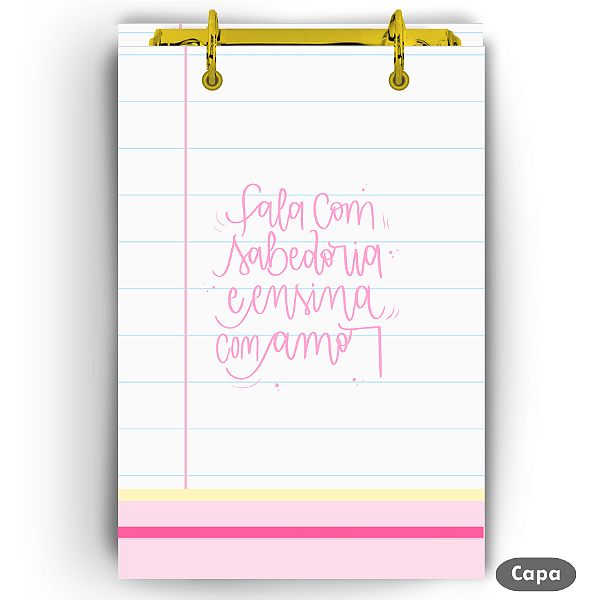 fala com
sabedoria
e ensina
com amor
Capa